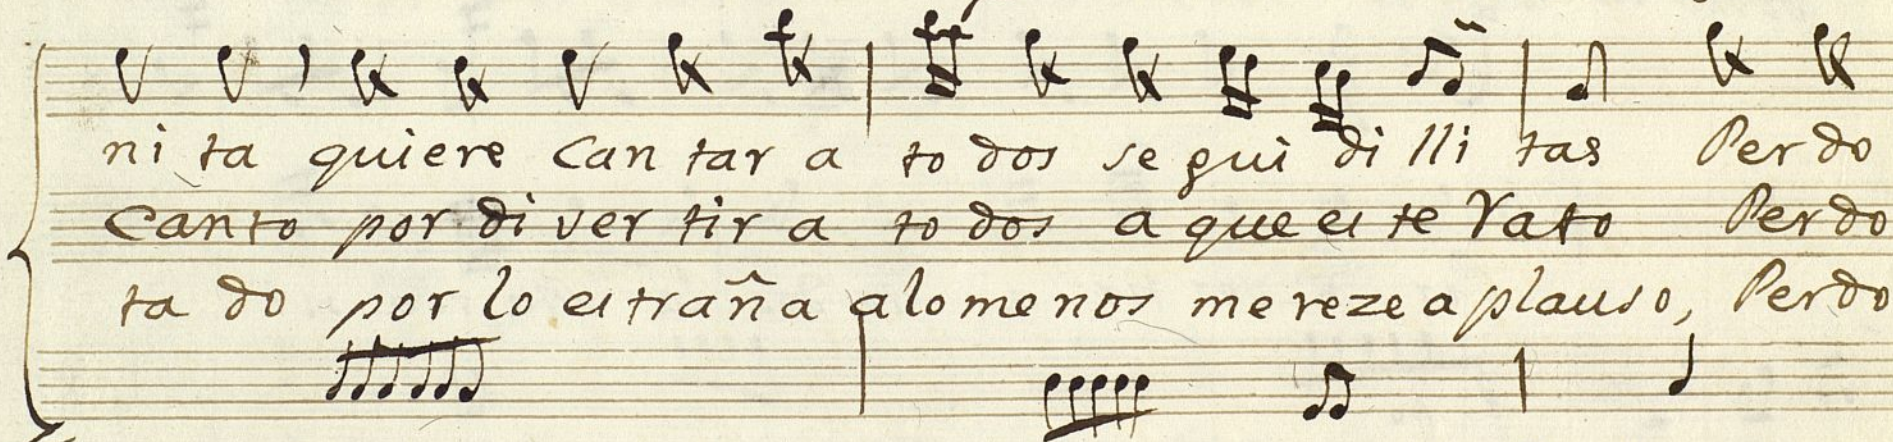 ni ta quiere Can tar a to dos se gui di lli tas Per do
Canto por di ver tir a to dos a que es te Rato Perdo
ta do por lo es trañ a alo me nos me reze a plauso, Perdo